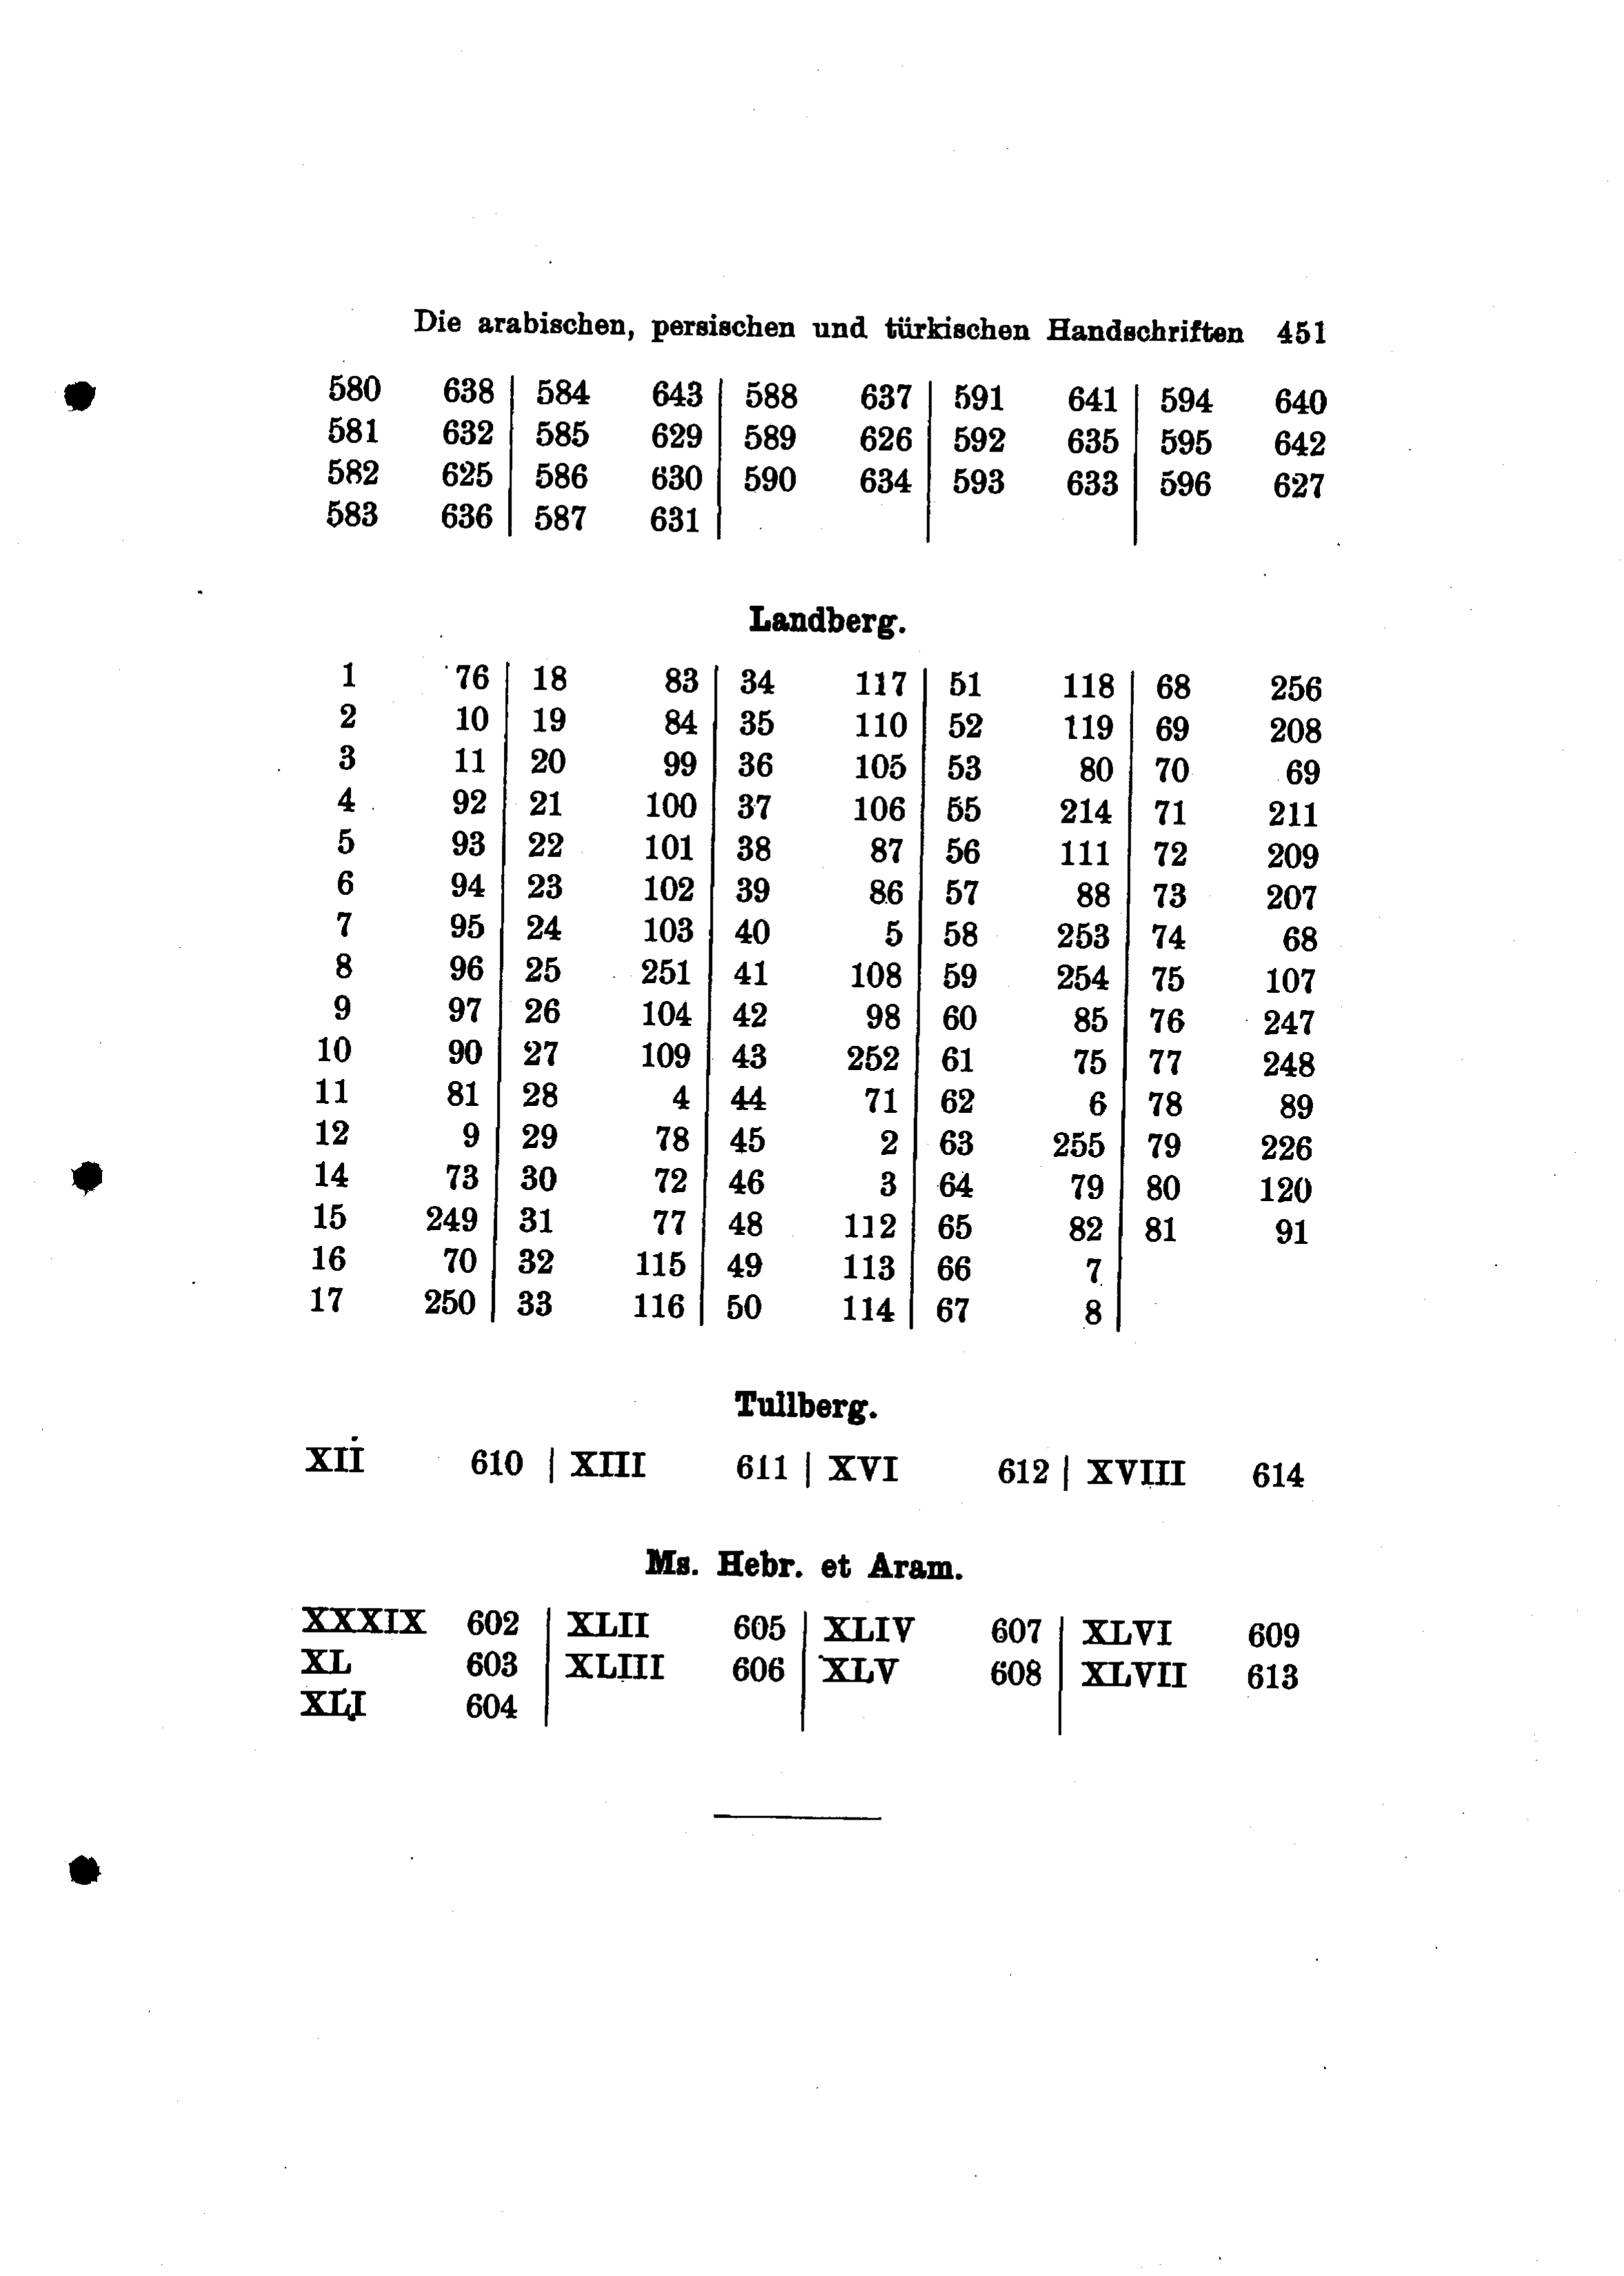 Die arabischen, persischen und türkischen Handschriften 451
580 638 | 584 643 | 588 637 | 591 641 | 594 640
581 632 | 585 629 | 589 626 | 592 635 | 595 642
582 625 | 586 630 | 590 634 | 593 633 | 596 627
583 636 | 587 631 |
Landberg.
1 76 | 18 83 | 34 117 | 51 118 | 68 256
2 10 | 19 84 | 35 110 | 52 119 | 69 208
3 11 | 20 99 | 36 105 | 53 80 | 70 69
4 92 | 21 100 | 37 106 | 55 214 | 71 211
5 93 | 22 101 | 38 87 | 56 111 | 72 209
6 94 | 23 102 | 39 86 | 57 88 | 73 207
7 95 | 24 103 | 40 5 | 58 253 | 74 68
8 96 | 25 251 | 41 108 | 59 254 | 75 107
9 97 | 26 104 | 42 98 | 60 85 | 76 247
10 90 | 27 109 | 43 252 | 61 75 | 77 248
11 81 | 28 4 | 44 71 | 62 6 | 78 89
12 9 | 29 78 | 45 2 | 63 255 | 79 226
14 73 | 30 72 | 46 3 | 64 79 | 80 120
15 249 | 31 77 | 48 112 | 65 82 | 81 91
16 70 | 32 115 | 49 113 | 66 7 |
17 250 | 33 116 | 50 114 | 67 8 |
Tullberg.
XII 610 | XIII 611 | XVI 612 | XVIII 614
Ms. Hebr. et Aram.
XXXIX 602 | XLII 605 | XLIV 607 | XLVI 609
XL 603 | XLIII 606 | XLV 608 | XLVII 613
XLI 604 |